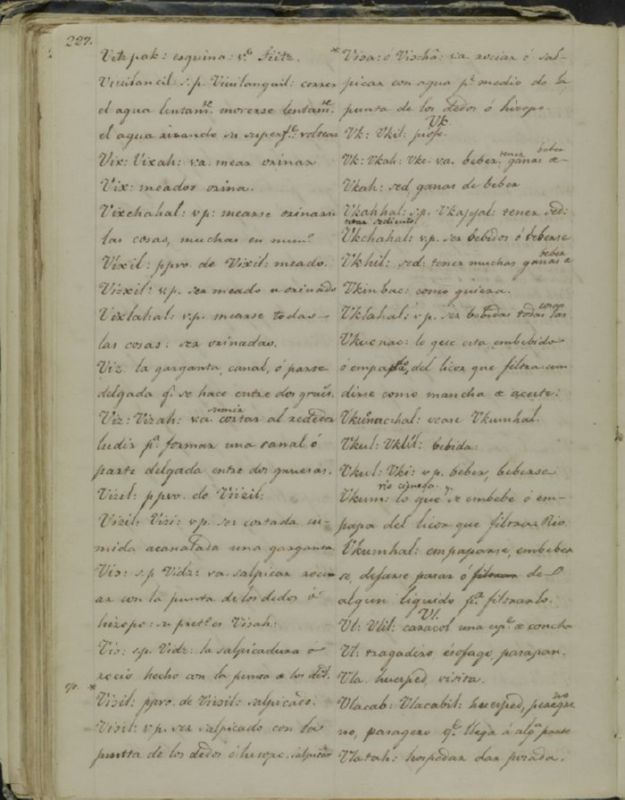 227.
Vitzpak: esquina: vº Titz.
Viciilancil: s.p. Viciilanquil: correr
el agua lentamte. moverse lentamte.
el agua rizando su superfe.
Vix: Vixah: va. mear orinar
Vix: meados orina.
Vixchahal: vp: mearse orinarse
las cosas, muchas en
Vixil: ppvo. de Vixil: meado.
Vixil: vp. ser meado u orinado
Vixlahal: v.p. mearse todas
las cosas: ser orinadas.
Viz. la garganta, canal, ó parte
delgada qe. se hace entre dos
Viz: Vizah: va. cortar al rededor
ludir pa. formar una canal ó
parte delgada entre dos gruesas.
Vizil: ppvo. de Vizil:
Vizil: Vizi: vp. ser cortada
acanalada una garganta
Vis: s.p. Vidz: va. salpicar
con la punta de los dedos ó
hisopo: su pretº. es Visah:
Vis: sp. Vidz: la salpicadura o
rocio hecho con la punta de los ded.
* Visil: ppvo. de Visil: salpicado.
Visil: vp. ser salpicado con la
punta de los dedos ó hisopo. salpicar
* Visa: ó Vischá: va. rociar ó sal-
picar con agua pr. medio de la
punta de los dedos ó hisopo.
Vk.
Vk: Vkil: piojo.
Vk: Vkah: Vke. va. beber. tener ganas de beber
Vkah: sed, ganas de beber
Vkahhal: s.p. Vkajyal: tener sed:
estar sediento
Vkchahal: vp. ser bebidos ó beberse
Vkhil: sed: tener muchas ganas de beber
Vkinbac: como quiera.
Vklahal: vp. ser bebidas todas las cosas
lo que esta embebido
ó empapdo. del licor que filtra
como mancha de aceite.
Vkunacchal: vease Vkumhal.
Vkul: Vklil: bebida:
Vkul: Vki: vp. beber, beberse
rio cienega y.
Vkum: lo que se embebe ó em-
papa del licor que filtrara Rio.
Vkumhal: empaparse, embeber
se, dejarse pasar ó filtrarse de
algun liquido pa. filtrarlo.
Vl.
Vl: Vlil: caracol una espe. de concha
Vl: tragadero, esofago, parapan.
Vla. huesped, visita.
Vlacab: Vlacabil: huesped, peregri
no, pasagero qe. llega á alga. parte
Vlatah: hospedar dar posada.